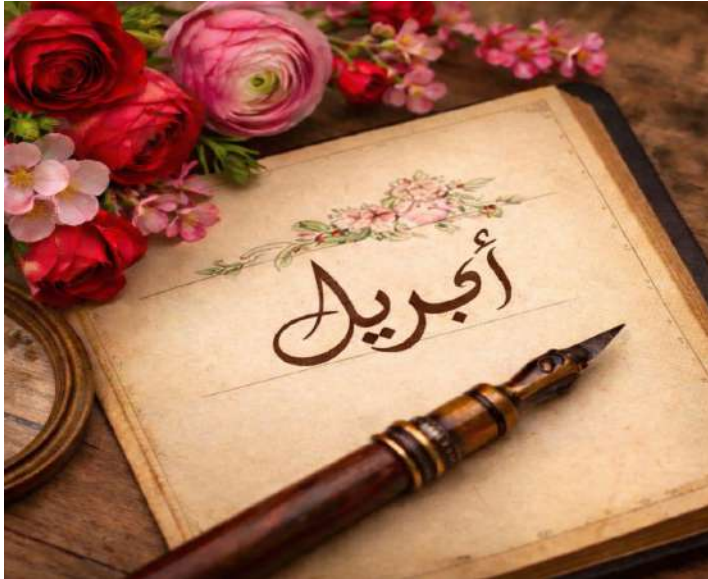 أبريل